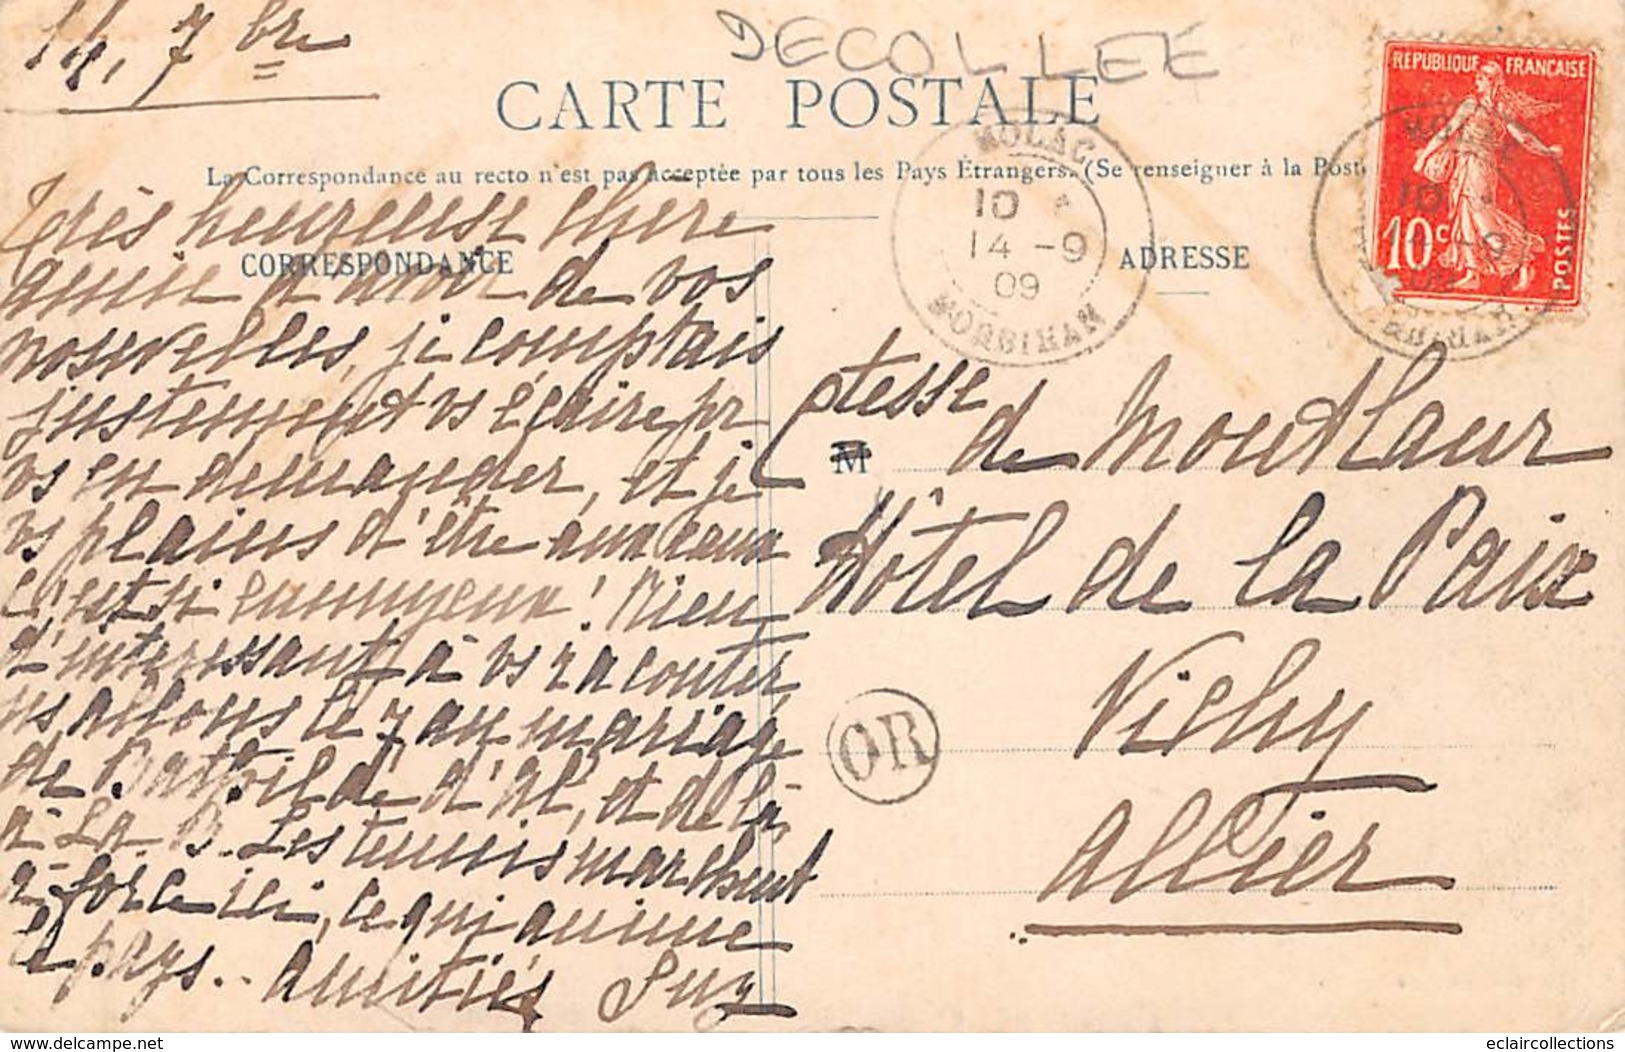 14, 7bre
DECOLLEE
CARTE POSTALE
La Correspondance au recto n'est pas acceptée par tous les Pays Étrangers. (Se renseigner à la Poste
CORRESPONDANCE
ADRESSE
REPUBLIQUE FRANÇAISE
10c
POSTES
MOLAC
10
14 -9
09
MORBIHAN
Très heureuse chère
amie d'avoir de vos
nouvelles, je comptais
justement vs écrire pr
vs en demander, et je
vs plains d'être aux eaux
c'est si ennuyeux! Rien
d'intéressant à vs raconter
ns allons le 7 au mariage
de Bathilde d'Al, et de là,
à La. B. Les tennis marchent
à force ici, ce qui anime
le pays.. Amitiés Suz
M
Ctesse de Montlaur
Hôtel de la Paix
Vichy
Allier
OR
www.delcampe.net
eclaircollections